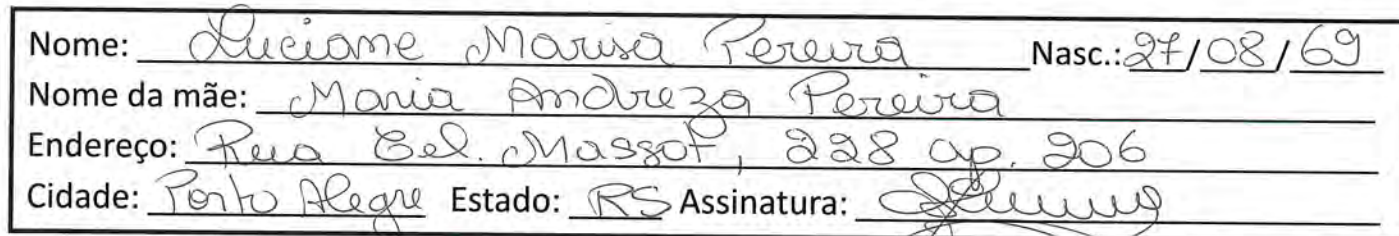 Nome: Luciane Marisa Pereira Nasc.: 27/08/69
Nome da mãe: Maria Andreza Pereira
Endereço: Rua Cel. Massot, 228 ap. 206
Cidade: Porto Alegre Estado: RS Assinatura: